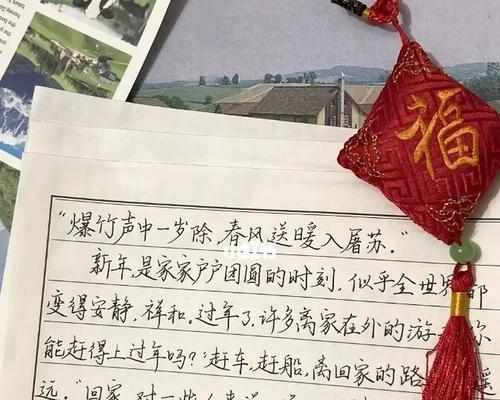 福
"爆竹声中一岁除,春风送暖入屠苏."
新年,是家家户户团圆的时刻,似乎全世界都
变得安静,祥和.过年了,许多离家在外的游 你
能赶得上过年吗?赶车,赶船,离回家的路 遥
远."回家,对一些人来说